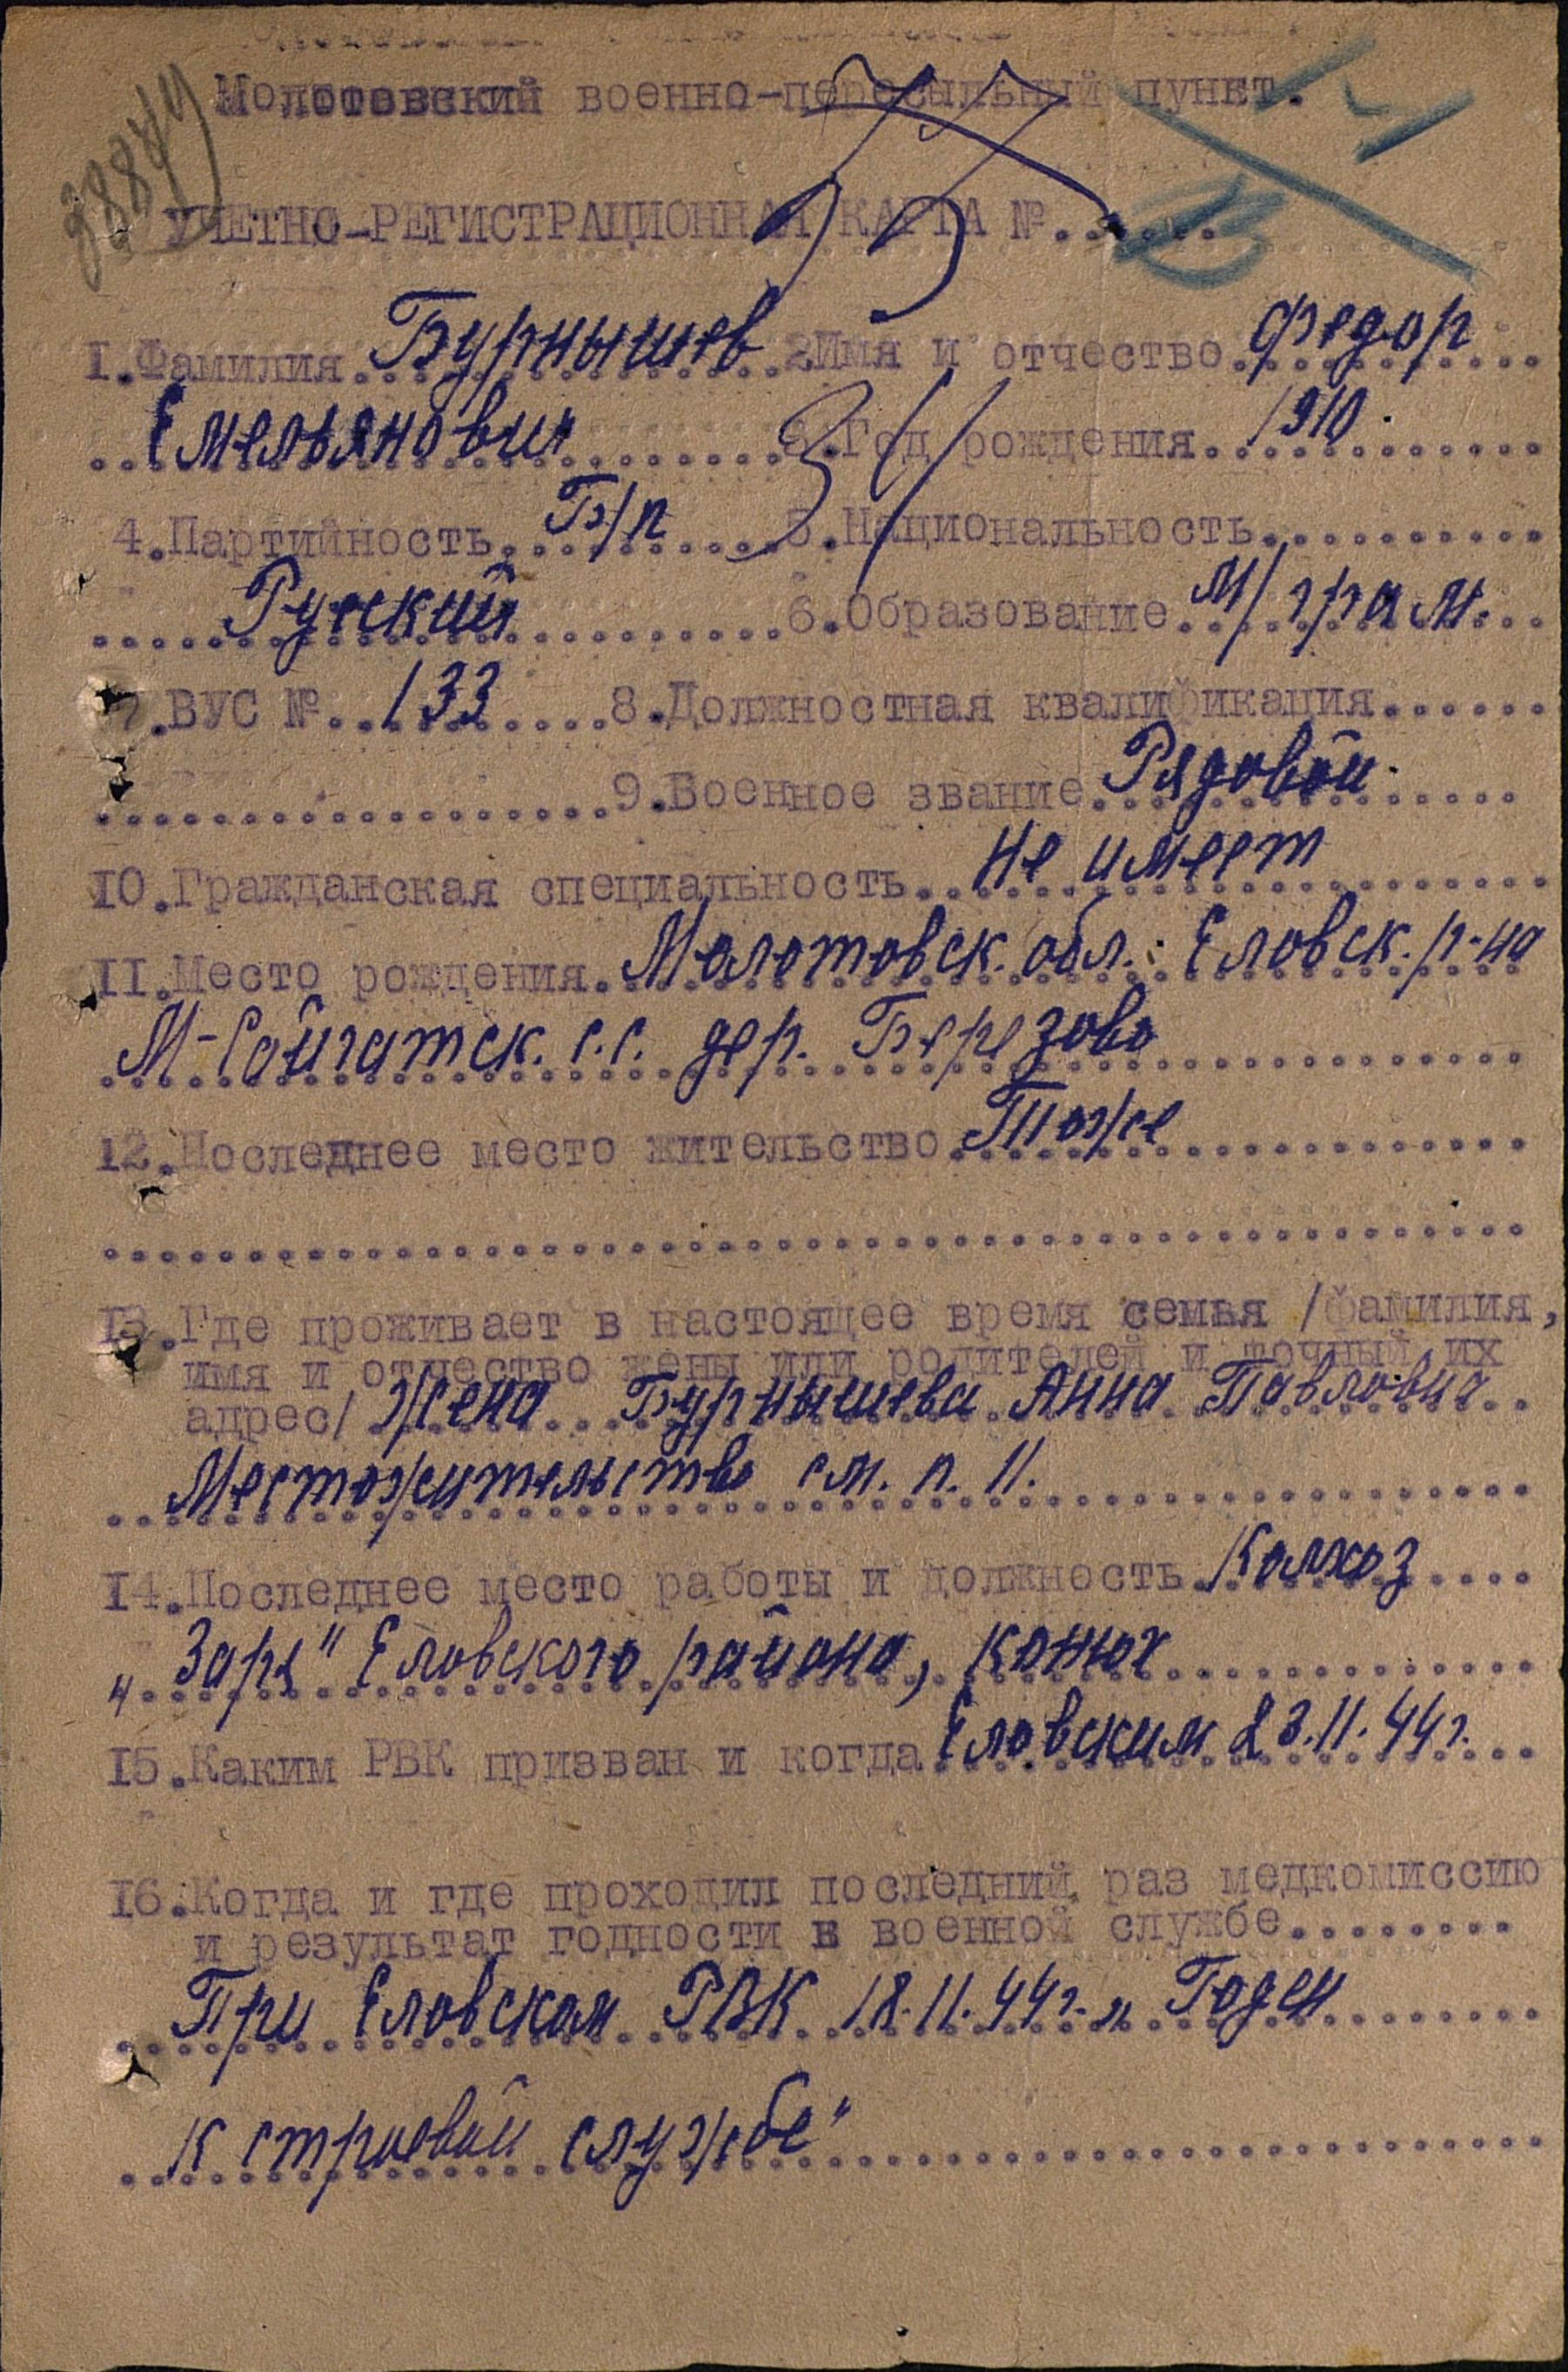 Молотовский военно-пересыльный пункт.
УЧЕТНО-РЕГИСТРАЦИОННАЯ КАРТА №......
1.Фамилия Бурнышев 2.Имя и отчество Федор
Емельянович 3.Год рождения 1910.
4.Партийность Б/п 5.Национальность..........
Руский 6.Образование М/грам.
7.ВУС № 133 8.Должностная квалификация......
..................9.Военное звание Рядовой.
10.Гражданская специальность Не имеет
11.Место рождения Молотовск. обл. Еловск. р-на
М-Сайгатск. с.с. дер. Березово
12.Последнее место жительство Тоже
13.Где проживает в настоящее время семья /фамилия,
имя и отчество жены или родителей и точный их
адрес/ Жена Бурнышева Анна Павловна
Местожительство см. п. 11.
14.Последнее место работы и должность Колхоз
„Заря" Еловского района, конюх
15.Каким РВК призван и когда Еловским 23.11.44г.
16.Когда и где проходил последний раз медкомиссию
и результат годности к военной службе........
При Еловском РВК 18.11.44г. „Годен
к строевой службе"